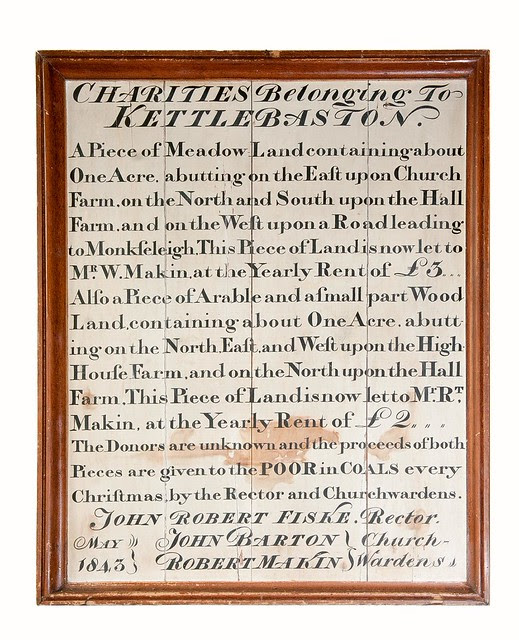 CHARITIES Belonging To
KETTLEBASTON.
A Piece of Meadow Land containing about
One Acre, abutting on the East upon Church
Farm, on the North and South upon the Hall
Farm, and on the Weſt upon a Road leading
to Monkſeleigh, This Piece of Land is now let to
Mr. W. Makin, at the Yearly Rent of £3...
Alſo a Piece of Arable and a ſmall part Wood
Land, containing about One Acre, abutt-
ing on the North, Eaſt, and Weſt upon the High-
Houſe Farm, and on the North upon the Hall
Farm. This Piece of Land is now let to Mr. RT.
Makin, at the Yearly Rent of £2....
The Donors are unknown and the proceeds of both
Pieces are given to the POOR in COALS every
Chriſtmas, by the Rector and Churchwardens.
JOHN ROBERT FISKE. Rector.
MAY } JOHN BARTON } Church-
1843 } ROBERT MAKIN } Wardens